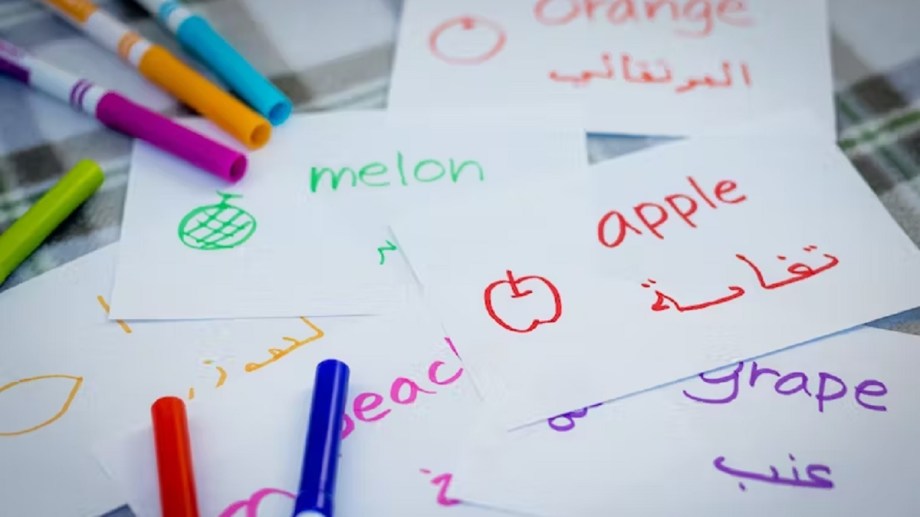 Orange
البرتقالي
melon
apple
تفاسة
grape
عنب